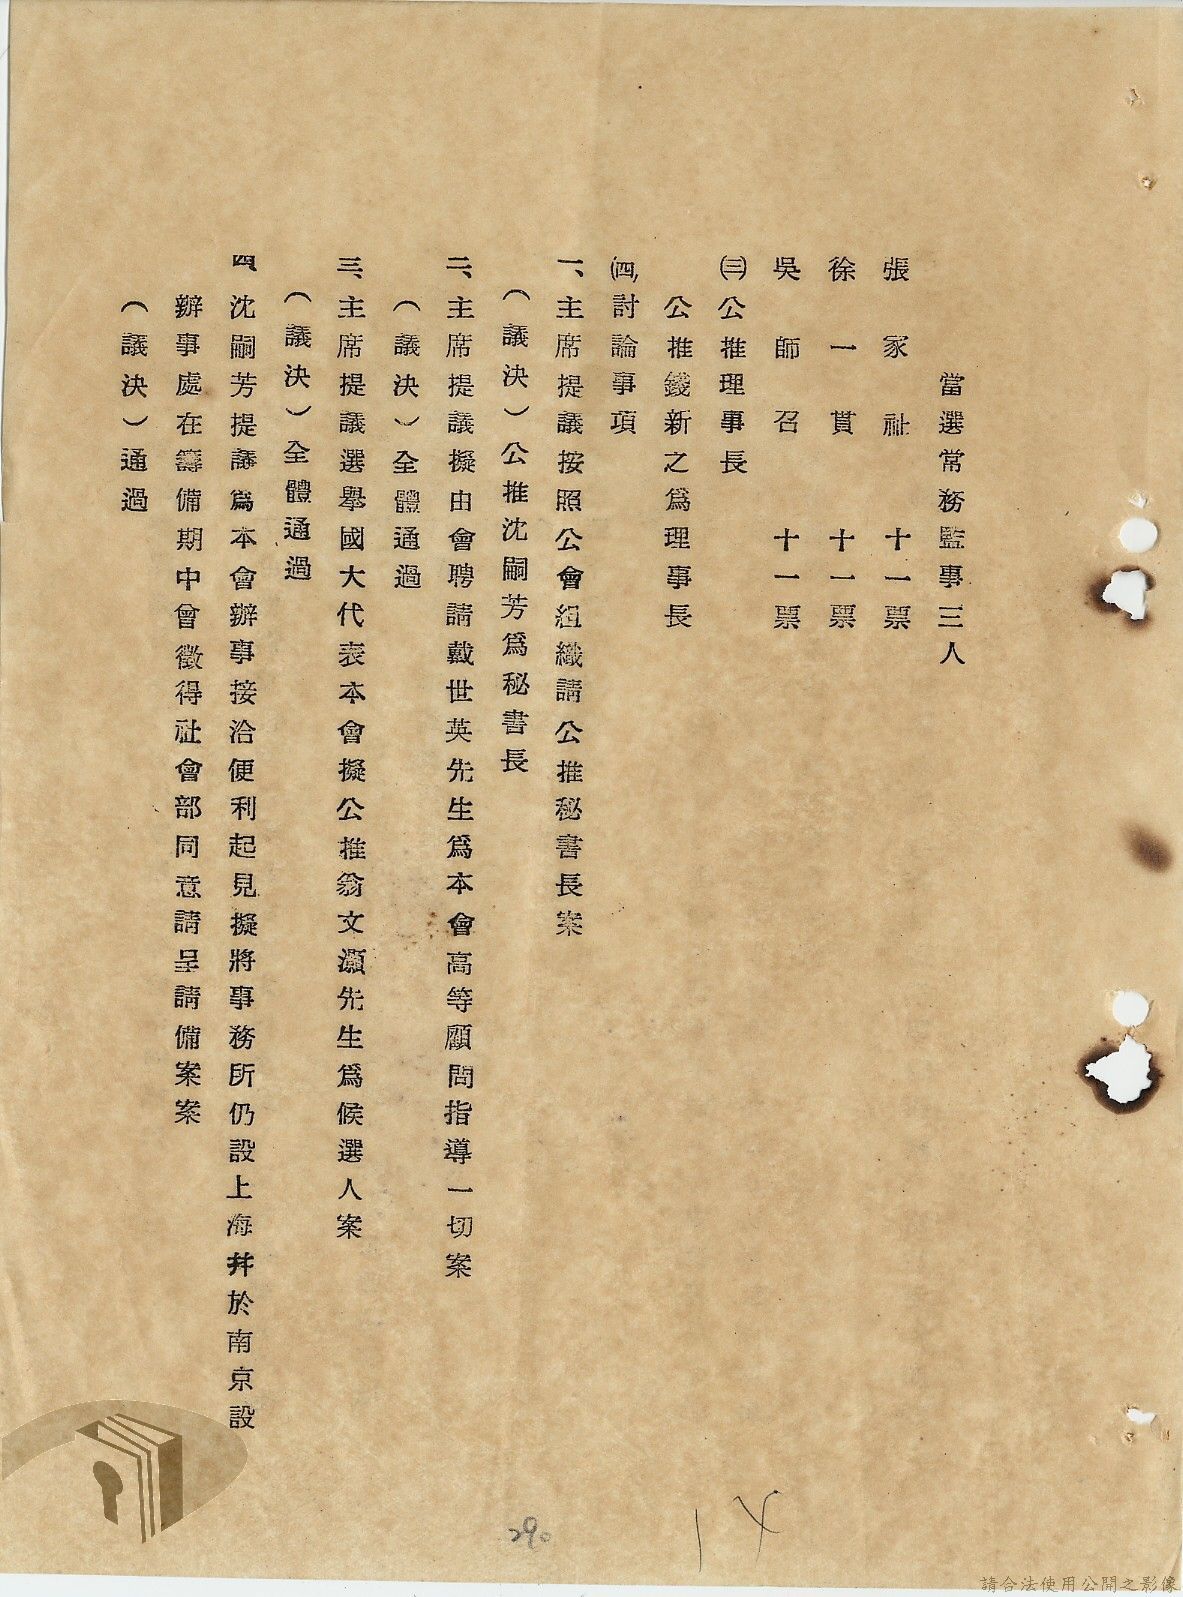 當選常務監事三人
張家祉 十一票
徐一貫 十一票
吳師召 十一票
㈢公推理事長
公推錢新之爲理事長
㈣討論事項
一、主席提議按照公會組織請公推秘書長案
（議決）公推沈嗣芳爲秘書長
二、主席提議擬由會聘請戴世英先生爲本會高等顧問指導一切案
（議決）全體通過
三、主席提議選舉國大代表本會擬公推翁文灝先生爲候選人案
（議決）全體通過
四、沈嗣芳提議爲本會辦事接洽便利起見擬將事務所仍設上海幷於南京設
辦事處在籌備期中曾徵得社會部同意請呈請備案案
（議決）通過
290
14
請合法使用公開之影像